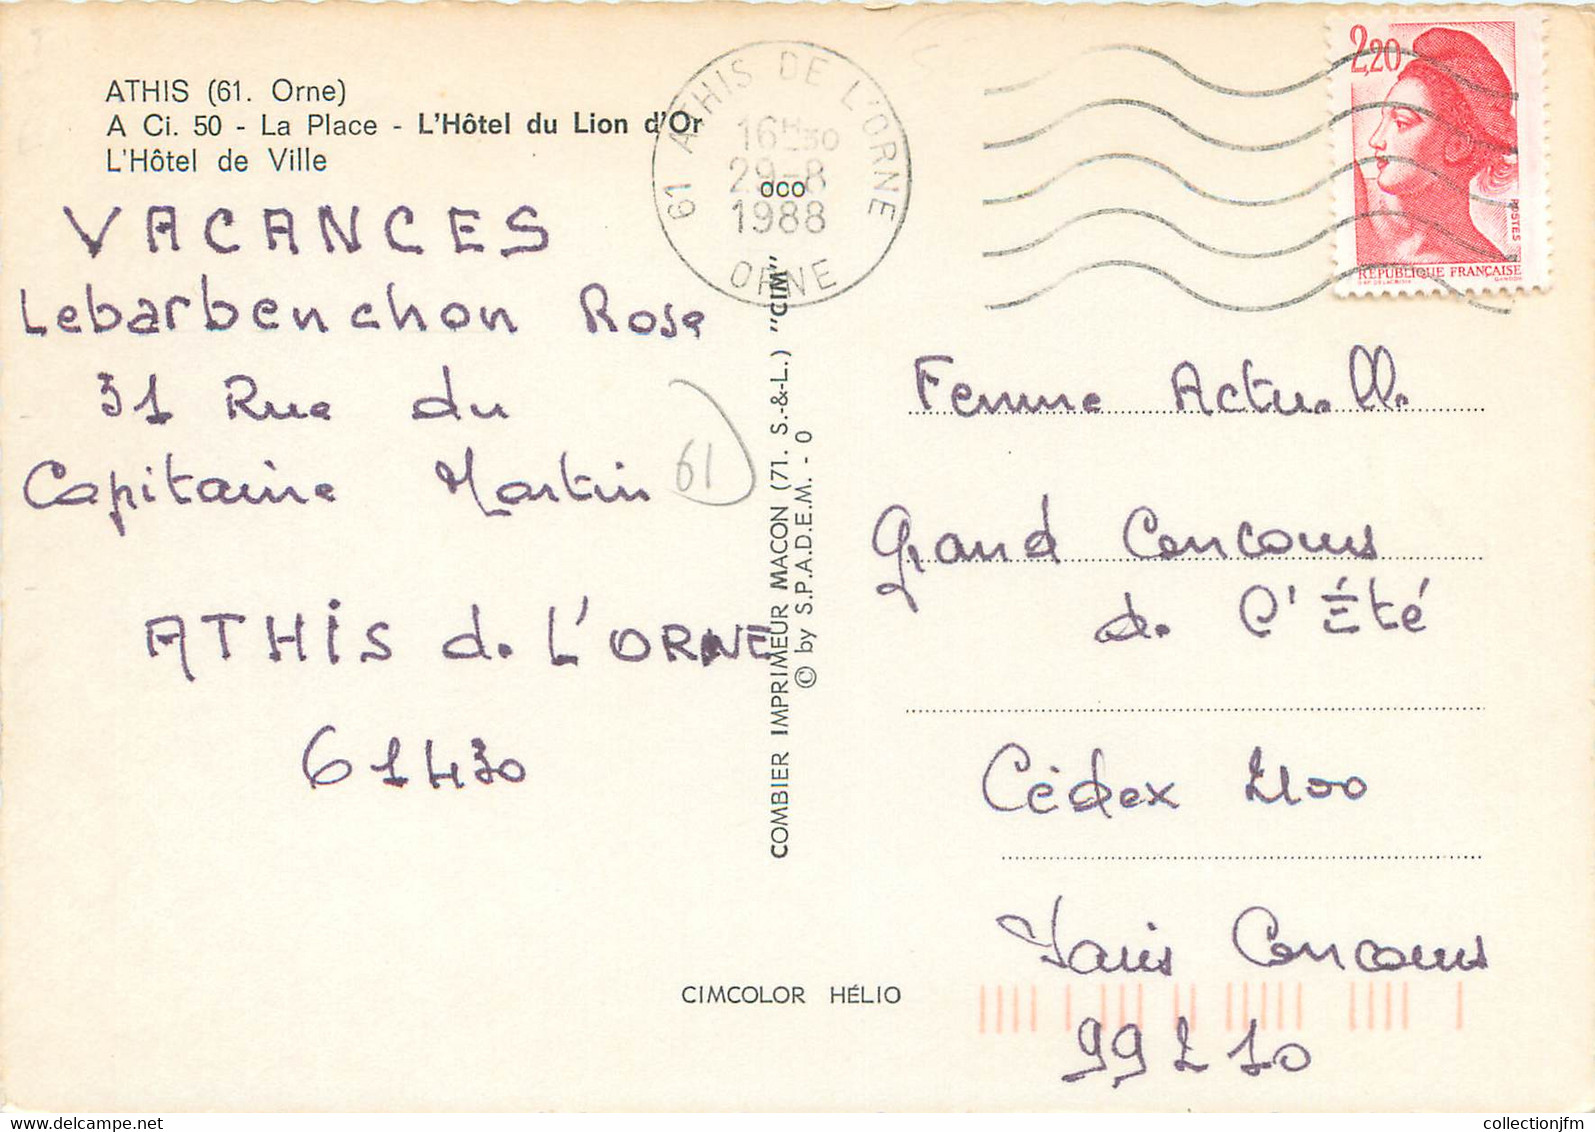 ATHIS (61. Orne)
A Ci. 50 - La Place - L'Hôtel du Lion d'Or
L'Hôtel de Ville
VACANCES
Lebarbenchon Rose
31 Rue du
Capitaine Martin
61
ATHIS de L'ORNE
61430
61 ATHIS DE L'ORNE
16H30
29-8
1988
ORNE
oco
COMBIER IMPRIMEUR MACON (71. S.-&-L.) "CIM"
© by S.P.A.D.E.M. - 0
CIMCOLOR HÉLIO
2,20
POSTES
RÉPUBLIQUE FRANÇAISE
GANDON
Femme Actuelle
Grand Concours
de l'Été
Cédex 2100
Paris Concours
99210
collectionjfm